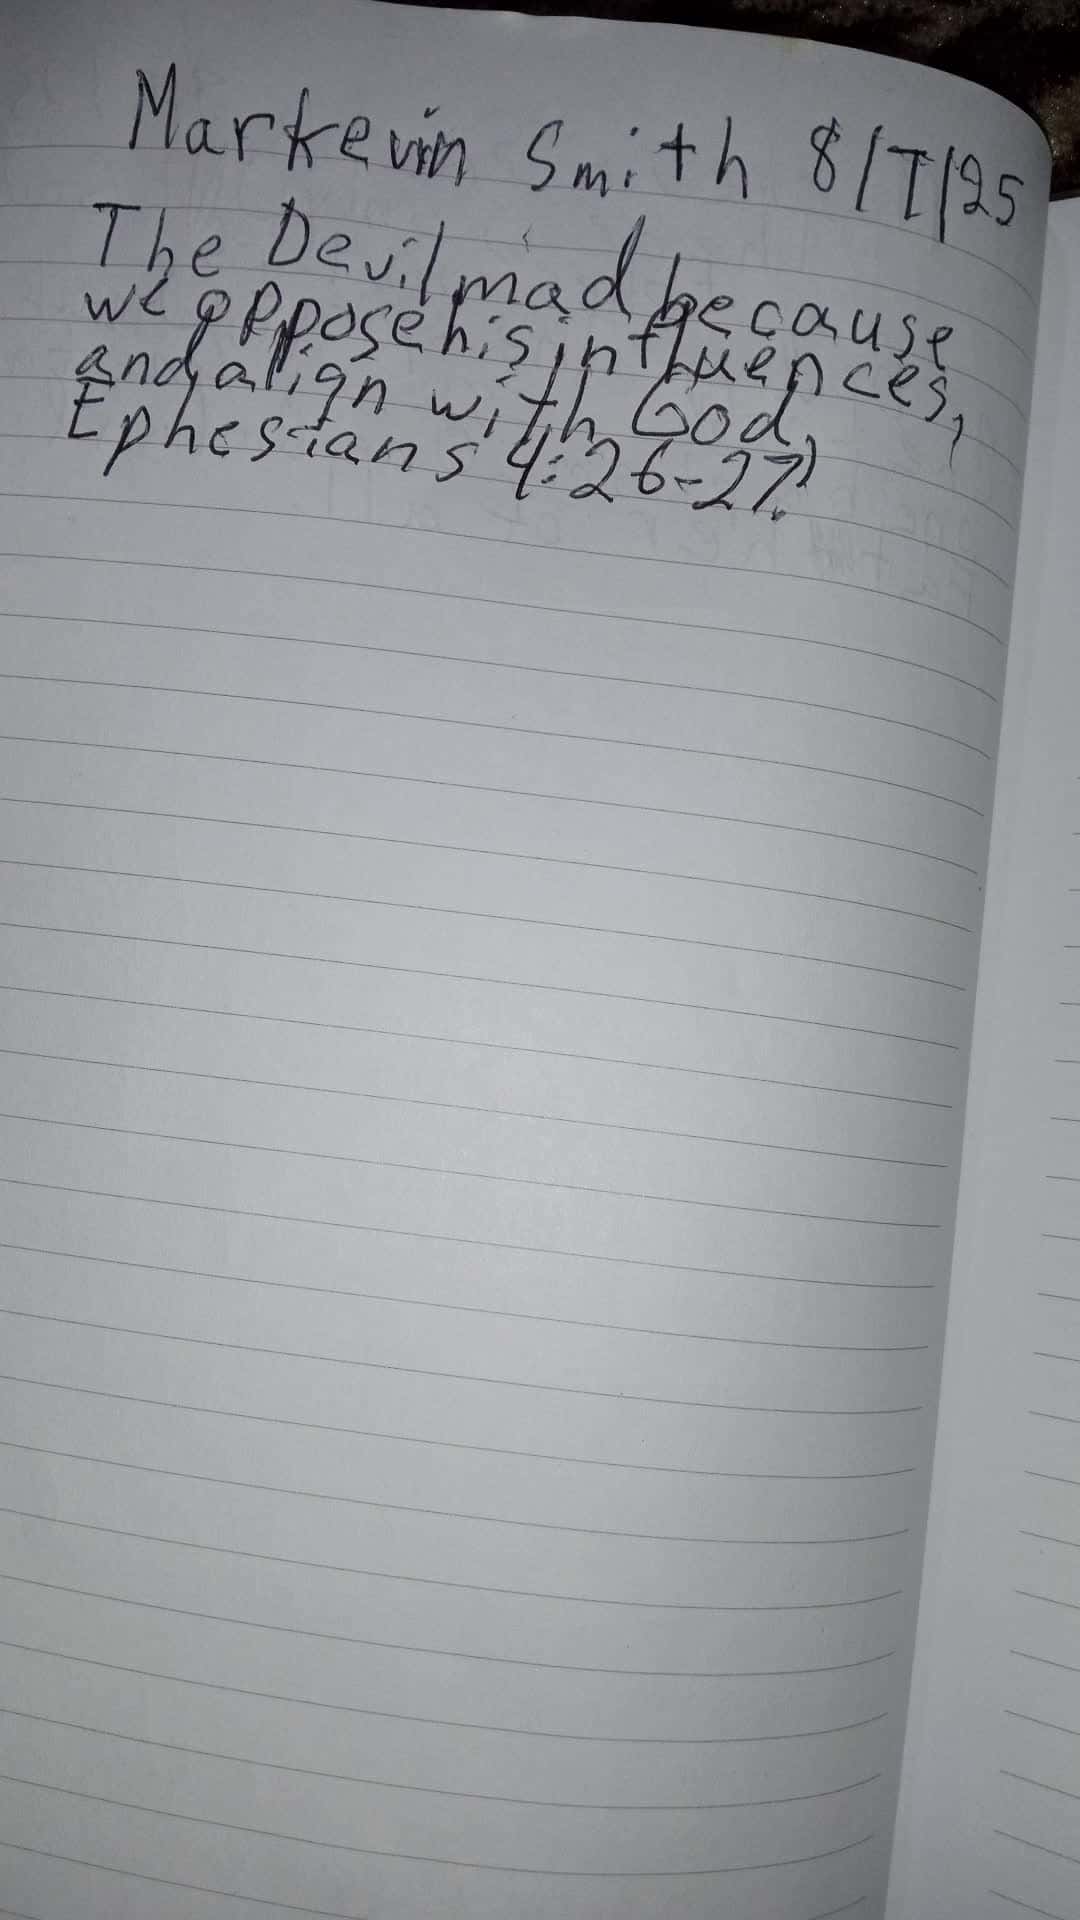 Markevin Smith 8/7/25
The Devil mad because
we oppose his influences,
and align with God,
Ephesians 4:26-27?